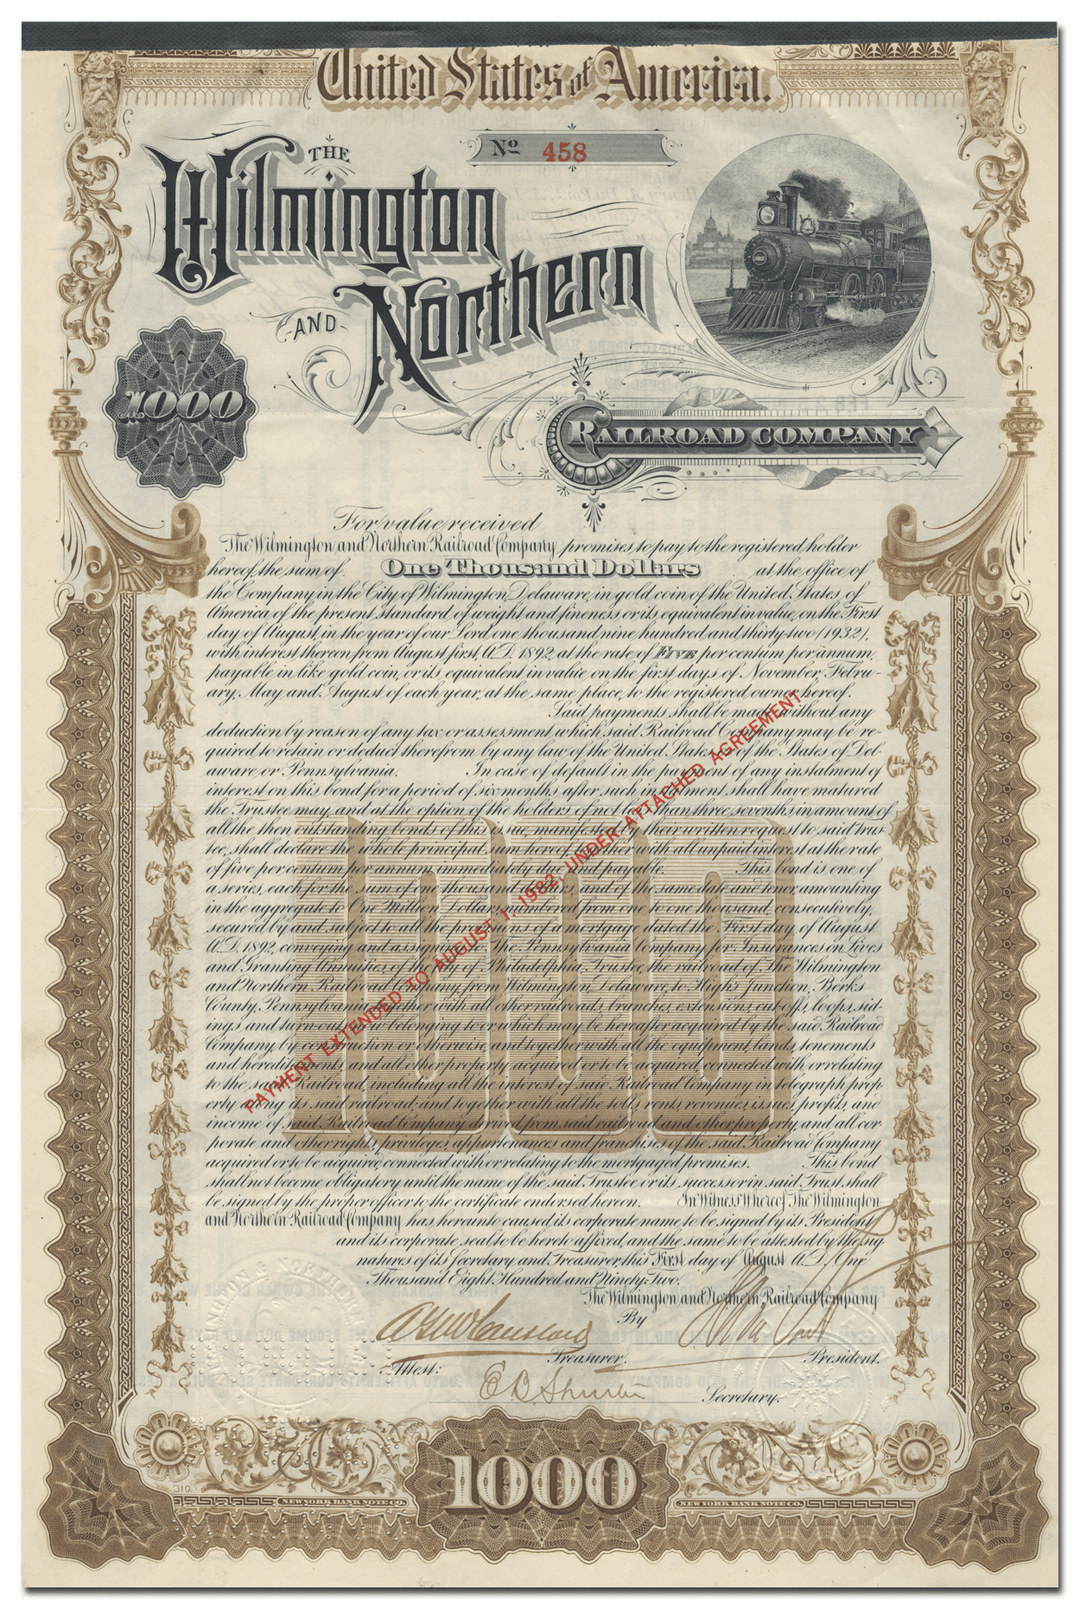 United States of America.
No 458
THE
Wilmington
AND Northern
1000
RAILROAD COMPANY
For value received
The Wilmington and Northern Railroad Company promises to pay to the registered holder
hereof, the sum of One Thousand Dollars at the office of
the Company in the City of Wilmington, Delaware, in gold coin of the United States of
America of the present standard of weight and fineness or its equivalent in value, on the First
day of August, in the year of our Lord one thousand nine hundred and thirty two (1932),
with interest thereon from August first, A.D. 1892, at the rate of FIVE per centum per annum,
payable in like gold coin, or its equivalent in value on the first days of November, Febru-
ary, May and August of each year, at the same place, to the registered owner hereof.
Said payments shall be made without any
deduction by reason of any tax or assessment which said Railroad Company may be re-
quired to retain or deduct therefrom by any law of the United States or of the States of Del-
aware or Pennsylvania. In case of default in the payment of any instalment of
interest on this bond for a period of six months after such instalment shall have matured
the Trustee may, and at the option of the holders of not less than three sevenths in amount of
all the then outstanding bonds of this issue, manifested by their written request to said Trus-
tee, shall declare the whole principal sum hereof, together with all unpaid interest at the rate
of five per centum per annum immediately due and payable. This bond is one of
a series, each for the sum of one thousand dollars, and of the same date and tenor, amounting
in the aggregate to One Million Dollars, numbered from one to one thousand, consecutively,
secured by and subject to all the provisions of a mortgage dated the First day of August
A.D. 1892, conveying and assigning to The Pennsylvania Company for Insurances on Lives
and Granting Annuities of the City of Philadelphia, Trustee, the railroad of The Wilmington
and Northern Railroad Company, from Wilmington, Delaware, to High's Junction, Berks
County, Pennsylvania, together with all other railroads, branches, extensions, cut-offs, loops, sid-
ings and turn-outs now belonging to or which may be hereafter acquired by the said Railroad
Company, by construction or otherwise, and together with all the equipment, lands, tenements
and hereditaments, and all other property acquired or to be acquired, connected with or relating
to the said Railroad, including all the interest of said Railroad Company in telegraph prop-
erty along its said railroad; and together with all the tolls, rents, revenues, issues, profits, and
income of said Railroad Company derived from said railroad and other property, and all cor-
porate and other rights, privileges, appurtenances and franchises of the said Railroad Company
acquired or to be acquired, connected with or relating to the mortgaged premises. This bond
shall not become obligatory until the name of the said Trustee or its successor in said Trust, shall
be signed by the proper officer to the certificate endorsed hereon. In Witness Whereof, The Wilmington
and Northern Railroad Company has hereunto caused its corporate name to be signed by its President
and its corporate seal to be hereto affixed, and the same to be attested by the sig-
natures of its Secretary and Treasurer, this First day of August A.D. One
Thousand Eight Hundred and Ninety Two.
PAYMENT EXTENDED TO AUGUST 1, 1982, UNDER ATTACHED AGREEMENT
1000
The Wilmington and Northern Railroad Company
By
Treasurer. President.
Attest:
Secretary.
310.
NEW YORK BANK NOTE CO. 1000 NEW YORK BANK NOTE CO.